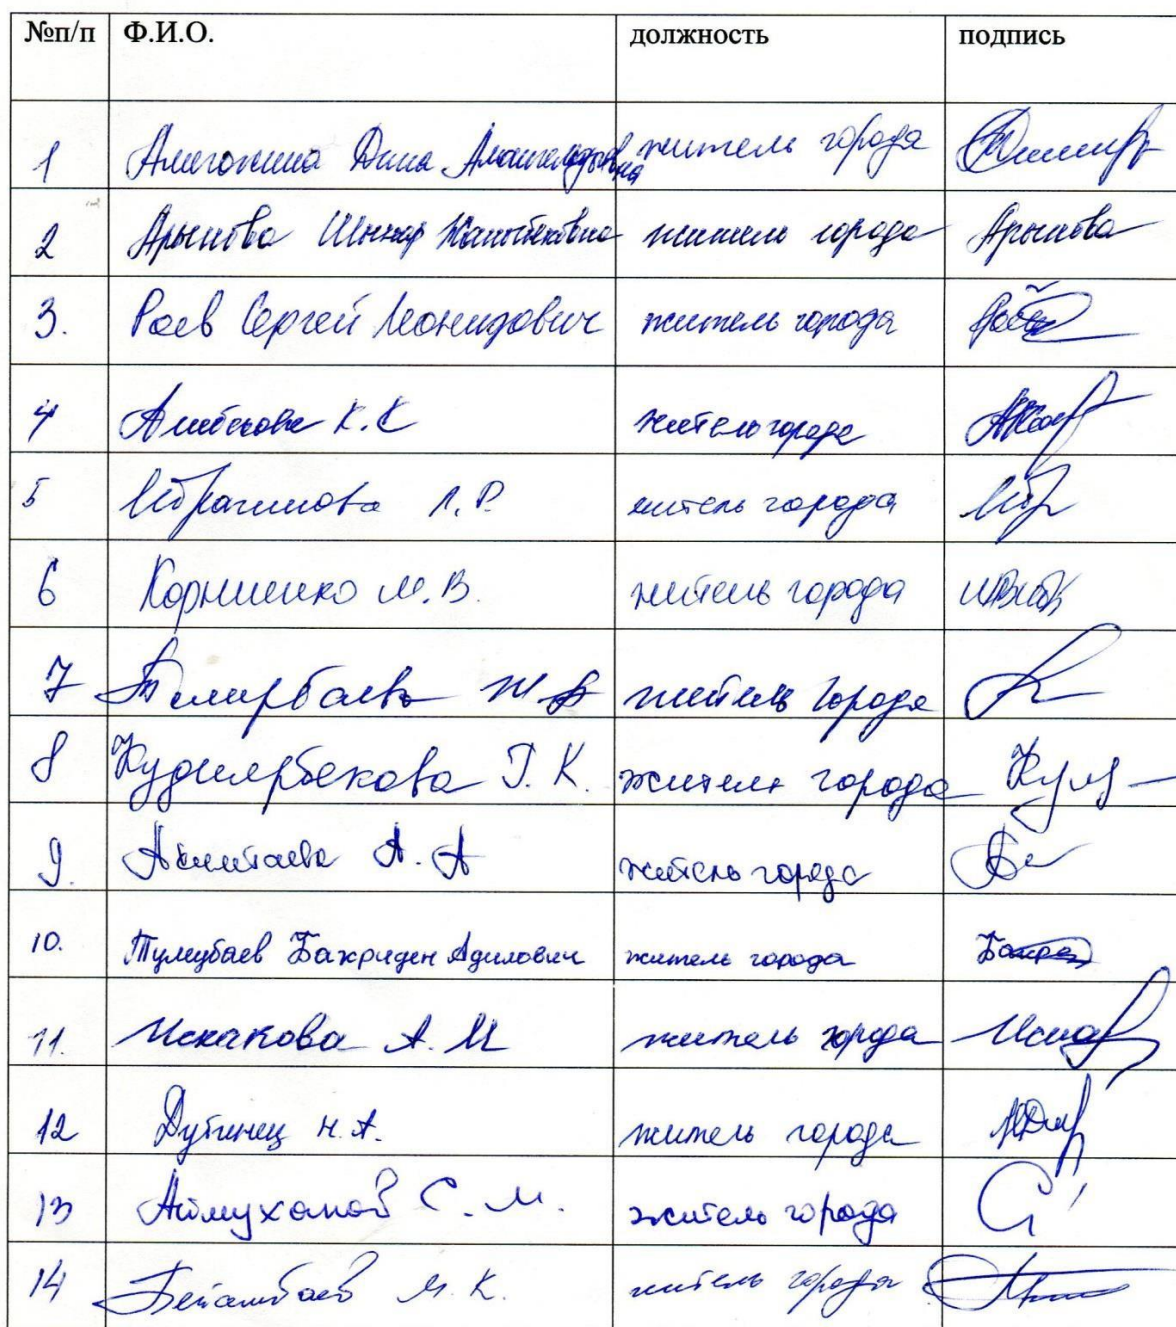 №п/п Ф.И.О. должность подпись
1 Дина житель города
2 Арынова Шынар житель города Арынова
3. Раев Сергей Леонидович житель города
4 К.К житель города
5 Ибрагимова Л.Р. житель города
6 Корниенко М.В. житель города
7 Темирбаева житель города
8 Кудиярбекова Г.К. житель города
9. А.А житель города
10. Тулеубаев Бахриден Адилович житель города
11. Искакова А.М житель города
12 Дубинец Н.А. житель города
13 Аймуханов С.М. житель города
14 М.К. житель города